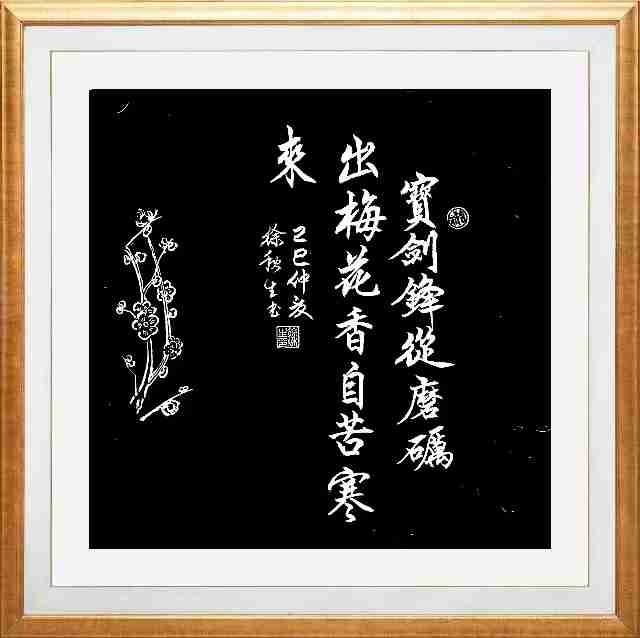 寶劍鋒從磨礪
出梅花香自苦寒
來
己巳仲夏
徐秋生書